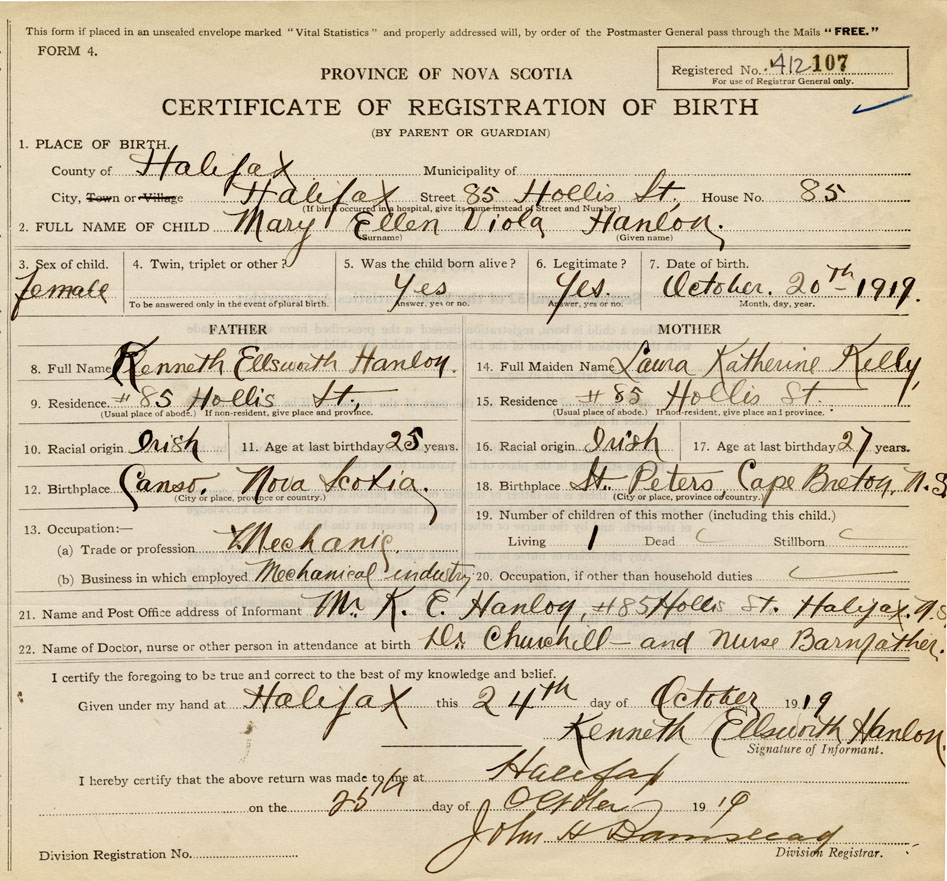 This form if placed in an unsealed envelope marked "Vital Statistics" and properly addressed will, by order of the Postmaster General pass through the Mails "FREE."
FORM 4.
Registered No. 412 107
For use of Registrar General only.
PROVINCE OF NOVA SCOTIA
CERTIFICATE OF REGISTRATION OF BIRTH
(BY PARENT OR GUARDIAN)
1. PLACE OF BIRTH.
County of Halifax Municipality of
City, Town or Village Halifax Street 85 Hollis St, House No. 85
(If birth occurred in a hospital, give its name instead of Street and Number)
2. FULL NAME OF CHILD Mary Ellen Viola Hanlon.
(Surname) (Given name)
3. Sex of child. 4. Twin, triplet or other? 5. Was the child born alive? 6. Legitimate? 7. Date of birth.
female Yes Yes. October. 20th 1919.
To be answered only in the event of plural birth. Answer, yes or no. Answer, yes or no. Month, day, year.
FATHER MOTHER
8. Full Name Kenneth Ellsworth Hanlon. 14. Full Maiden Name Laura Katherine Kelly,
9. Residence. #85 Hollis St., 15. Residence #85 Hollis St.
(Usual place of abode.) If non-resident, give place and province. (Usual place of abode.) If non-resident, give place and province.
10. Racial origin Irish 11. Age at last birthday 25 years. 16. Racial origin Irish 17. Age at last birthday 27 years.
12. Birthplace Canso, Nova Scotia, 18. Birthplace St. Peters, Cape Breton, N.S
(City or place, province or country.) (City or place, province or country.)
13. Occupation:— 19. Number of children of this mother (including this child.)
(a) Trade or profession Mechanic, Living 1 Dead Stillborn
(b) Business in which employed Mechanical industry 20. Occupation, if other than household duties
21. Name and Post Office address of Informant Mr. K. E. Hanlon, #85 Hollis St. Halifax, N.S
22. Name of Doctor, nurse or other person in attendance at birth Dr. Churchill and Nurse Barnfather.
I certify the foregoing to be true and correct to the best of my knowledge and belief.
Given under my hand at Halifax this 24th day of October 1919
Kenneth Ellsworth Hanlon,
Signature of Informant.
I hereby certify that the above return was made to me at Halifax
on the 25th day of October 1919
John H
Division Registrar.
Division Registration No.